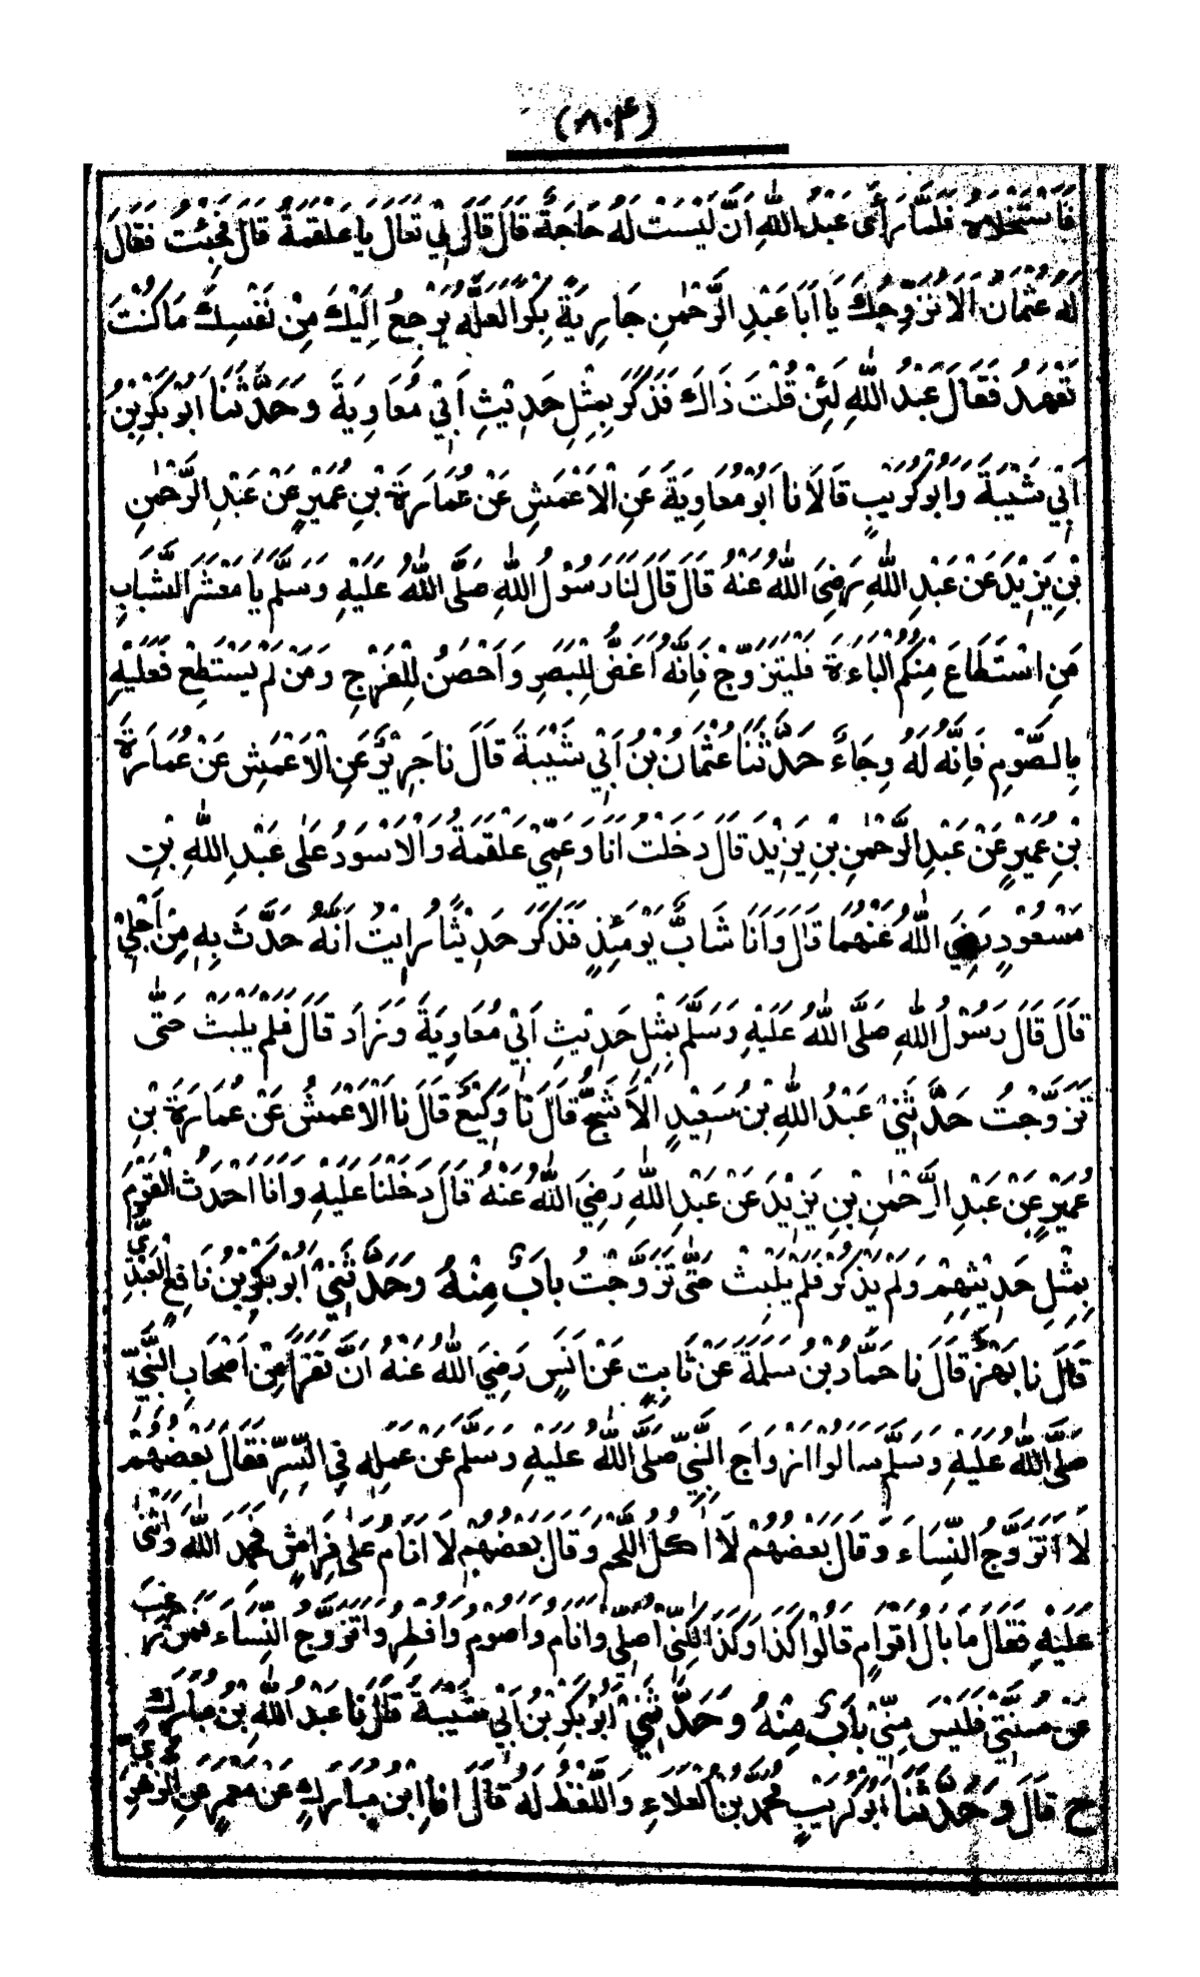 (۸۰۴)
فَاسْتَخْلَاهُ فَلَمَّا رَأَى عَبْدُ اللّٰهِ أَنْ لَيْسَتْ لَهُ حَاجَةٌ قَالَ قَالَ لِيْ تَعَالَ يَا عَلْقَمَةُ قَالَ فَجِئْتُ فَقَالَ
لَهُ عُثْمَانُ اَلَا نُزَوِّجُكَ يَا اَبَا عَبْدِ الرَّحْمٰنِ جَارِيَةً بِكْرًا لَعَلَّهُ يَرْجِعُ اِلَيْكَ مِنْ نَفْسِكَ مَا كُنْتَ
تَعْهَدُ فَقَالَ عَبْدُ اللّٰهِ لَئِنْ قُلْتَ ذَاكَ فَذَكَرَ بِمِثْلِ حَدِيْثِ اَبِيْ مُعَاوِيَةَ وَحَدَّثَنَا اَبُوْ بَكْرِ بْنُ
اَبِيْ شَيْبَةَ وَاَبُوْ كُرَيْبٍ قَالَا نا اَبُوْ مُعَاوِيَةَ عَنِ الْاَعْمَشِ عَنْ عُمَارَةَ بْنِ عُمَيْرٍ عَنْ عَبْدِ الرَّحْمٰنِ
بْنِ يَزِيْدَ عَنْ عَبْدِ اللّٰهِ رَضِيَ اللّٰهُ عَنْهُ قَالَ قَالَ لَنَا رَسُوْلُ اللّٰهِ صَلَّى اللّٰهُ عَلَيْهِ وَسَلَّمَ يَا مَعْشَرَ الشَّبَابِ
مَنِ اسْتَطَاعَ مِنْكُمُ الْبَاءَةَ فَلْيَتَزَوَّجْ فَاِنَّهُ اَغَضُّ لِلْبَصَرِ وَاَحْصَنُ لِلْفَرْجِ وَمَنْ لَمْ يَسْتَطِعْ فَعَلَيْهِ
بِالصَّوْمِ فَاِنَّهُ لَهُ وِجَاءٌ حَدَّثَنَا عُثْمَانُ بْنُ اَبِيْ شَيْبَةَ قَالَ نا جَرِيْرٌ عَنِ الْاَعْمَشِ عَنْ عُمَارَةَ
بْنِ عُمَيْرٍ عَنْ عَبْدِ الرَّحْمٰنِ بْنِ يَزِيْدَ قَالَ دَخَلْتُ اَنَا وَعَمِّيْ عَلْقَمَةُ وَالْاَسْوَدُ عَلٰى عَبْدِ اللّٰهِ بْنِ
مَسْعُوْدٍ رَضِيَ اللّٰهُ عَنْهُمَا قَالَ وَاَنَا شَابٌّ يَوْمَئِذٍ فَذَكَرَ حَدِيْثًا رَاَيْتُ اَنَّهُ حَدَّثَ بِهِ مِنْ اَجْلِيْ
قَالَ قَالَ رَسُوْلُ اللّٰهِ صَلَّى اللّٰهُ عَلَيْهِ وَسَلَّمَ بِمِثْلِ حَدِيْثِ اَبِيْ مُعَاوِيَةَ وَزَادَ قَالَ فَلَمْ يَلْبَثْ حَتّٰى
تَزَوَّجْتُ حَدَّثَنِيْ عَبْدُ اللّٰهِ بْنُ سَعِيْدٍ الْاَشَجُّ قَالَ نَا وَكِيْعٌ قَالَ نا الْاَعْمَشُ عَنْ عُمَارَةَ بْنِ
عُمَيْرٍ عَنْ عَبْدِ الرَّحْمٰنِ بْنِ يَزِيْدَ عَنْ عَبْدِ اللّٰهِ رَضِيَ اللّٰهُ عَنْهُ قَالَ دَخَلْنَا عَلَيْهِ وَاَنَا اَحْدَثُ الْقَوْمِ
بِمِثْلِ حَدِيْثِهِمْ وَلَمْ يَذْكُرْ فَلَمْ يَلْبَثْ حَتّٰى تَزَوَّجْتُ بابٌ مِنْهُ وَحَدَّثَنِيْ اَبُوْ بَكْرِ بْنُ نَافِعٍ الْعَبْدِيُّ
قَالَ نا بَهْزٌ قَالَ نا حَمَّادُ بْنُ سَلَمَةَ عَنْ ثَابِتٍ عَنْ اَنَسٍ رَضِيَ اللّٰهُ عَنْهُ اَنَّ نَفَرًا مِنْ اَصْحَابِ النَّبِيِّ
صَلَّى اللّٰهُ عَلَيْهِ وَسَلَّمَ سَاَلُوْا اَزْوَاجَ النَّبِيِّ صَلَّى اللّٰهُ عَلَيْهِ وَسَلَّمَ عَنْ عَمَلِهِ فِي السِّرِّ فَقَالَ بَعْضُهُمْ
لَا اَتَزَوَّجُ النِّسَاءَ وَقَالَ بَعْضُهُمْ لَا اٰكُلُ اللَّحْمَ وَقَالَ بَعْضُهُمْ لَا اَنَامُ عَلٰى فِرَاشٍ فَحَمِدَ اللّٰهَ وَاَثْنٰى
عَلَيْهِ فَقَالَ مَا بَالُ اَقْوَامٍ قَالُوْا كَذَا وَكَذَا لٰكِنِّيْ اُصَلِّيْ وَاَنَامُ وَاَصُوْمُ وَاُفْطِرُ وَاَتَزَوَّجُ النِّسَاءَ فَمَنْ رَغِبَ
عَنْ سُنَّتِيْ فَلَيْسَ مِنِّيْ بابٌ مِنْهُ وَحَدَّثَنِيْ اَبُوْ بَكْرِ بْنُ اَبِيْ شَيْبَةَ قَالَ نا عَبْدُ اللّٰهِ بْنُ مُبَارَكٍ
ح قَالَ وَحَدَّثَنَا اَبُوْ كُرَيْبٍ مُحَمَّدُ بْنُ الْعَلَاءِ وَاللَّفْظُ لَهُ قَالَ انا ابْنُ مُبَارَكٍ عَنْ مَعْمَرٍ عَنِ الزُّهْرِيِّ